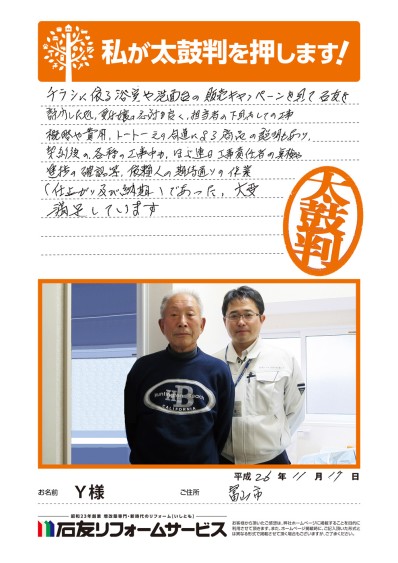 私が太鼓判を押します!
チラシに依る浴室や洗面台の販売キャンペーンを見て石友を
訪問した処、受付様の応対も良く、担当者の下見をしての工事
概略や費用、トートーエの
契約後の、各種の工事中カ、ほぼ連日工事責任者の
進捗の確認等、依頼人の期待通りの作業
(仕上がり及び納期)であった。大変
満足しています
太鼓判
Huntington Beach
HB
CALIFORNIA
平成 26 年 11 月 17 日
お名前 Y様 ご住所 富山市
昭和33年創業 増改築専門・新時代のリフォーム[いしとも]
石友リフォームサービス
お客様から頂いたご感想は、弊社ホームページに掲載することを目的に
利用させて頂きます。また、ホームページ掲載時に、ご記入頂いた形式と
は異なる形式で掲載させて頂く場合もございますが、ご了承ください。